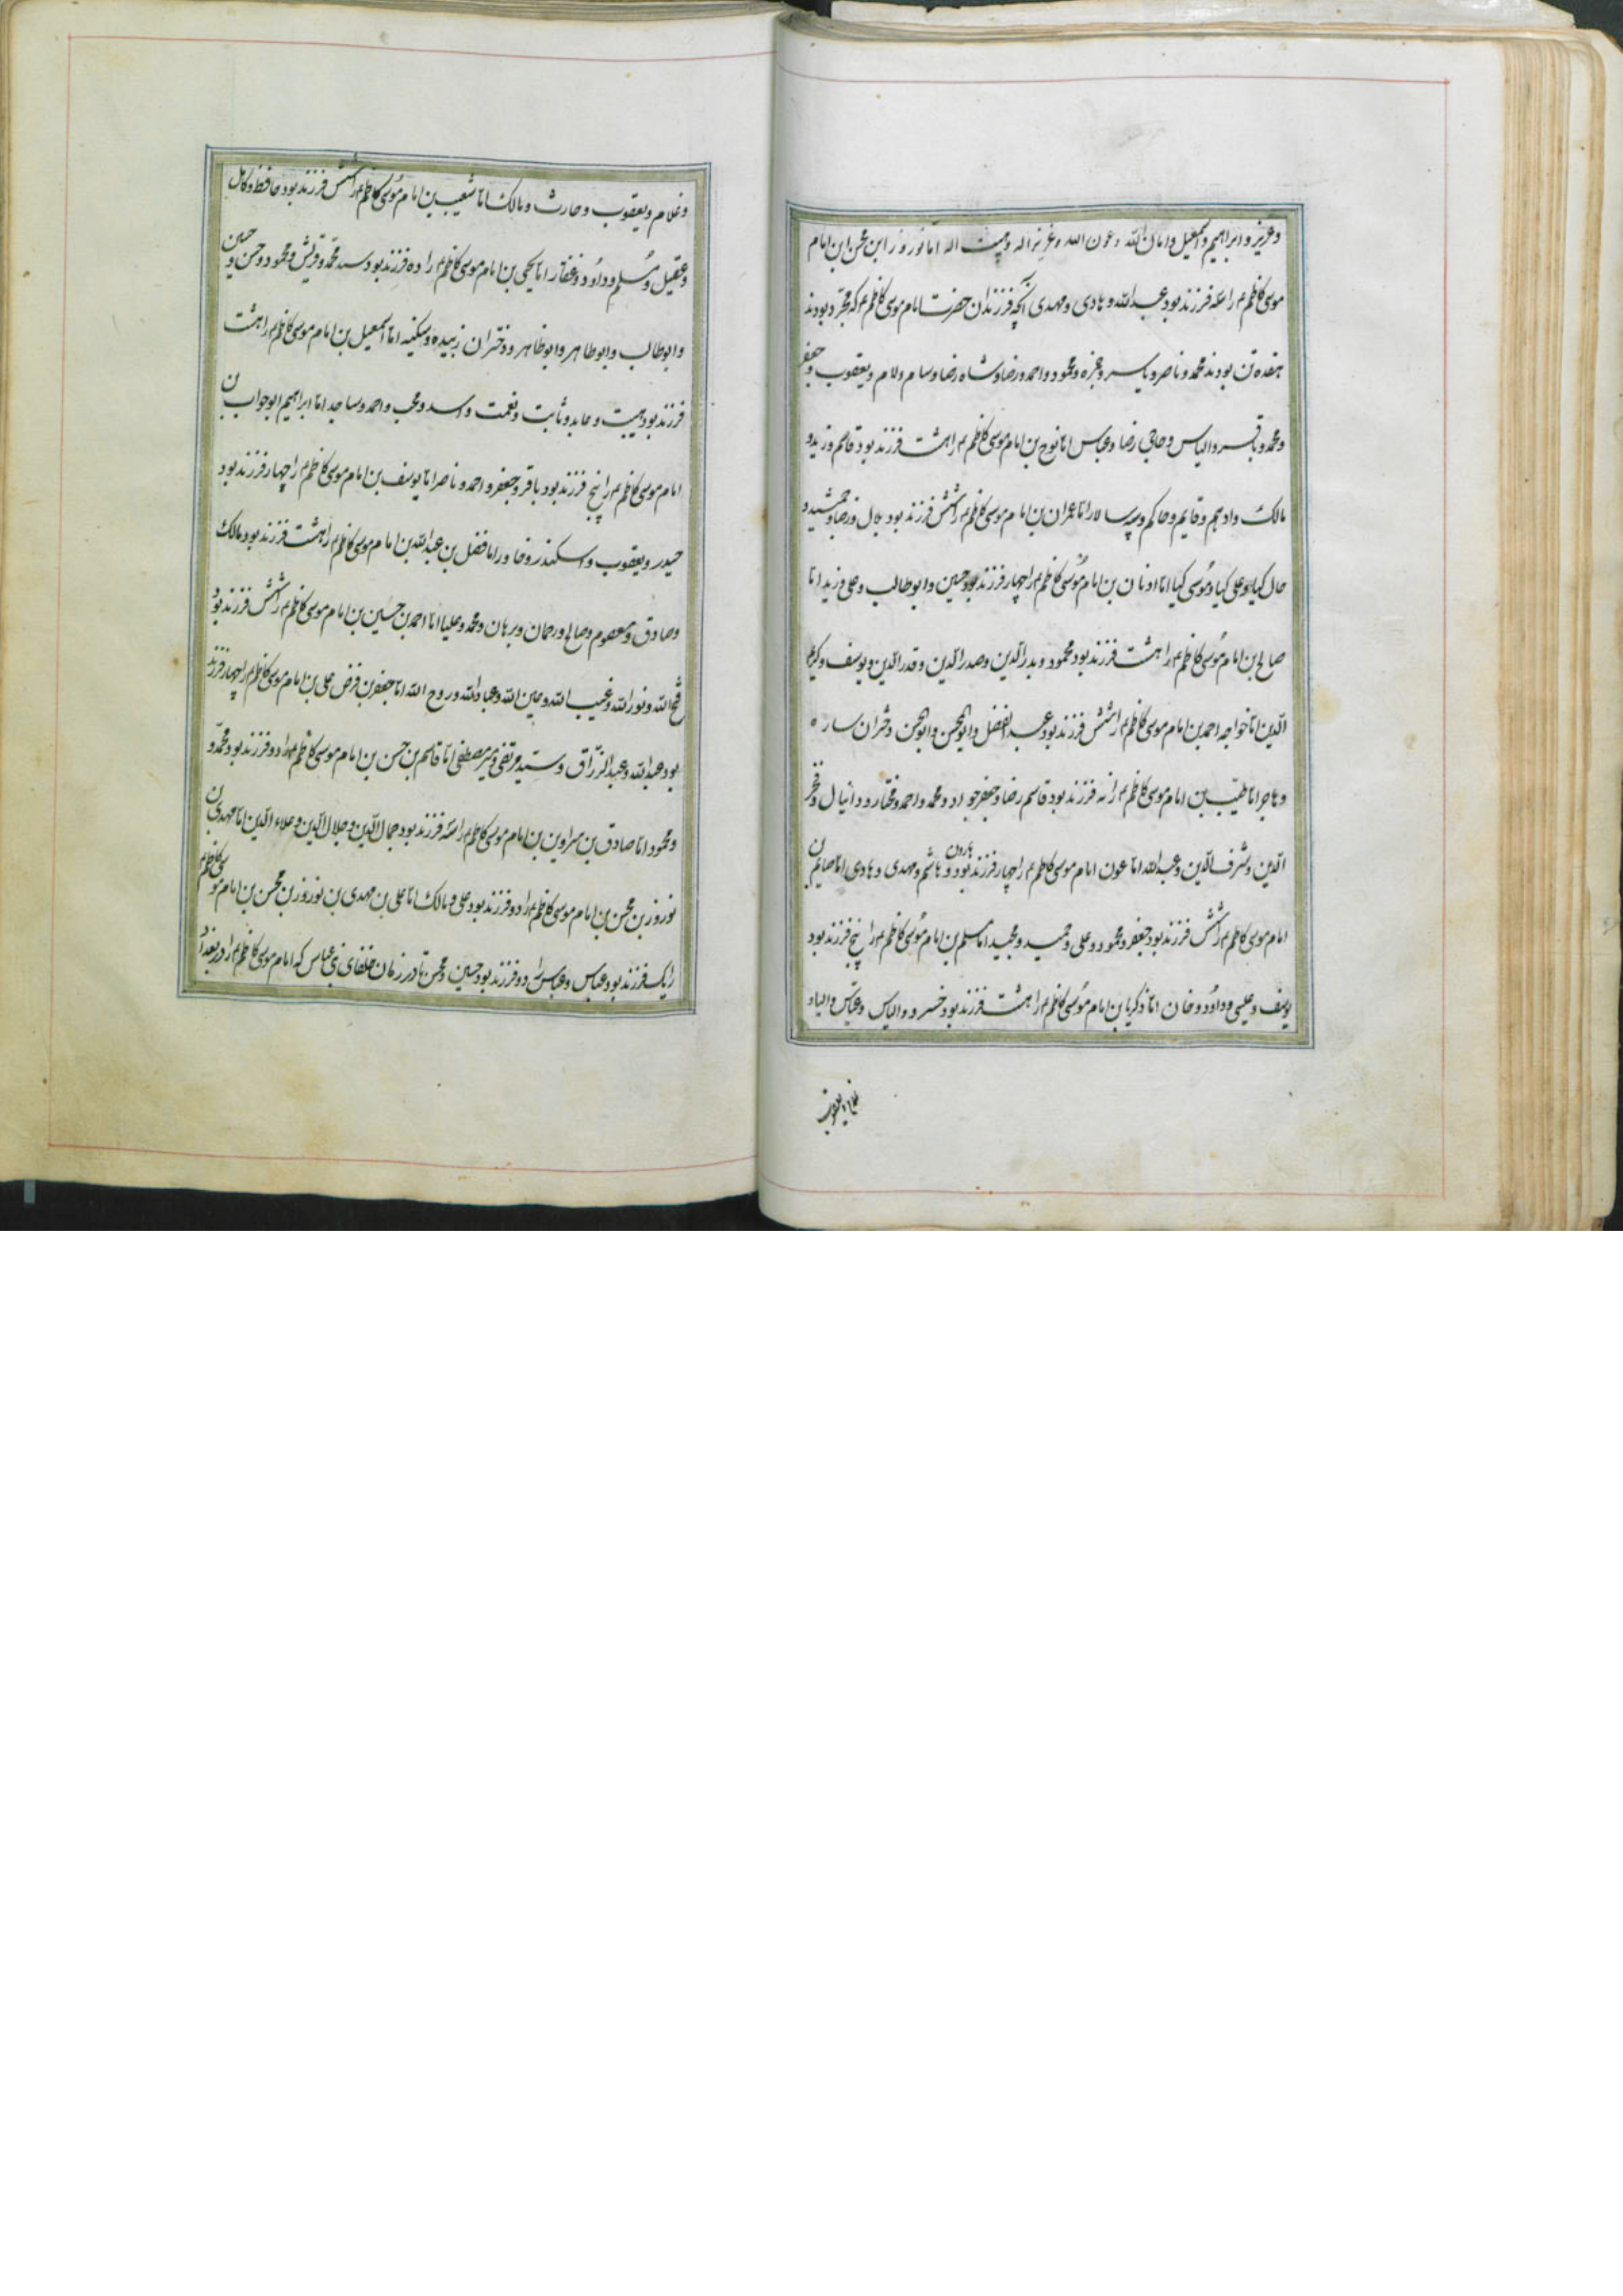 وعزیز و ابراهیم و اسمعیل و امان الله و عون الله و عزیز اله و هیبت اله اما نوروز ابن محسن ابن امام
موسی کاظم ع را سه فرزند بود عبدالله و هادی و مهدی آنچه فرزندان حضرت امام موسی کاظم ع که مجرد بودند
هفده تن بودند محمد و ناصر و یاسر و حمزه و محمود و احمد و رضا و شاه رضا و سام و لام و یعقوب و جعفر
و محمد و باقر و الیاس و حاجی رضا و عباس اما نوح بن امام موسی کاظم ع را هشت فرزند بود قاسم و زید و
مالک و ادهم و قایم و حاکم و سپه سالار اما عمران بن امام موسی کاظم ع را شش فرزند بود بلال و رضا و جمشید و
حال کیا و علی کیا و موسی کیا اما بن امام موسی کاظم ع را چهار فرزند بود حسین و ابوطالب و علی و زید اما
صالح بن امام موسی کاظم ع را هشت فرزند بود محمود و بدرالدین و صدرالدین و قدرالدین و یوسف و کریم
الدین اما خواجه احمد بن امام موسی کاظم ع را شش فرزند بود عبدالفضل و ابوالحسن و دختران ساره
و هاجر اما طیب بن امام موسی کاظم ع را نه فرزند بود قاسم رضا و جعفر جواد و محمد و احمد و مختار و دانیال و فخر
الدین و شرف الدین و عبدالله اما عون امام موسی کاظم ع را چهار فرزند بود هارون و هاشم و مهدی و هادی اما صایم بن
امام موسی کاظم ع را شش فرزند بود جعفر و محمود و علی و حمید و مجید اما مسلم بن امام موسی کاظم ع را پنج فرزند بود
یوسف و عیسی و داود و خان اما ذکریا بن امام موسی کاظم ع را هشت فرزند بود خسرو و الیاس و عباس و الیاد
غلام یعقوب
و غلام و یعقوب و حارث و مالک اما شعیب بن امام موسی کاظم ع را شش فرزند بود حافظ و کامل
و عقیل و مسلم و داود و غفار اما یحیی بن امام موسی کاظم ع را ده فرزند بود سید محمد و قریش و محمود و حسن و حسین و
و ابوطالب و ابوطاهر و ابوظاهر و دختران زبیده و سکینه اما اسمعیل بن امام موسی کاظم ع را هشت
فرزند بود هیبت و عابد و ثابت و نعمت و اسد و محب و احمد و ساجد اما ابراهیم ابوجواب بن
امام موسی کاظم ع را پنج فرزند بود باقر و جعفر و احمد و ناصر اما یوسف بن امام موسی کاظم ع را چهار فرزند بود
حیدر و یعقوب و اسکندر و خاور اما فضل بن عبدالله بن امام موسی کاظم ع را هشت فرزند بود مالک
و صادق و معصوم و صالح و رحمان و برهان و محمد و علیا اما احمد بن حسین بن امام موسی کاظم ع را شش فرزند بود
فتح الله و نورالله و غیب الله و معین الله و عبادالله و روح الله اما جعفر بن فرض علی بن امام موسی کاظم ع را چهار فرزند
بود عبدالله و عبدالرزاق و سید مرتضی و میر مصطفی اما قاسم بن حسن بن امام موسی کاظم ع را دو فرزند بود محمد و
و محمود اما صادق بن بن امام موسی کاظم ع را سه فرزند بود جمال الدین و جلال الدین و علاء الدین اما مهدی بن
نوروز بن محسن بن امام موسی کاظم ع را دو فرزند بود علی و مالک اما علی بن مهدی بن نوروز بن محسن بن امام موسی کاظم ع
را یک فرزند بود عباس و عباس را دو فرزند بود حسین و محسن تا در زمان خلفای بنی عباس که امام موسی کاظم ع را در بغداد